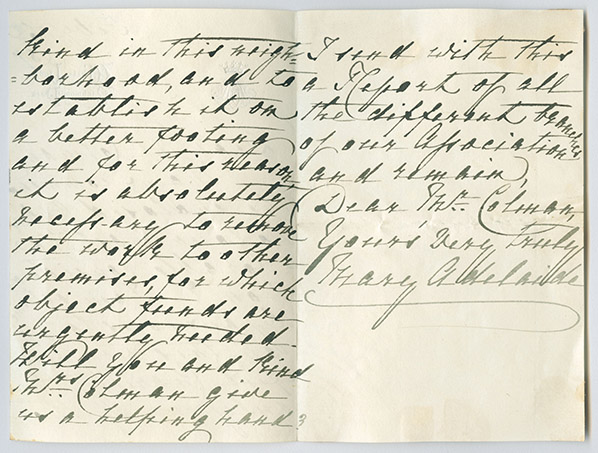 kind in this neigh=
=borhood, and to
establish it on
a better footing
and for this reason,
it is absolutely
necessary to remove
the work to other
premises, for which
object funds are
urgently needed.
Will you and kind
Mrs Colman give
us a helping hand?
I send with this
a Report of all
the different branches
of our Association
and remain,
Dear Mr. Colman,
Yours, Very truly
Mary Adelaide